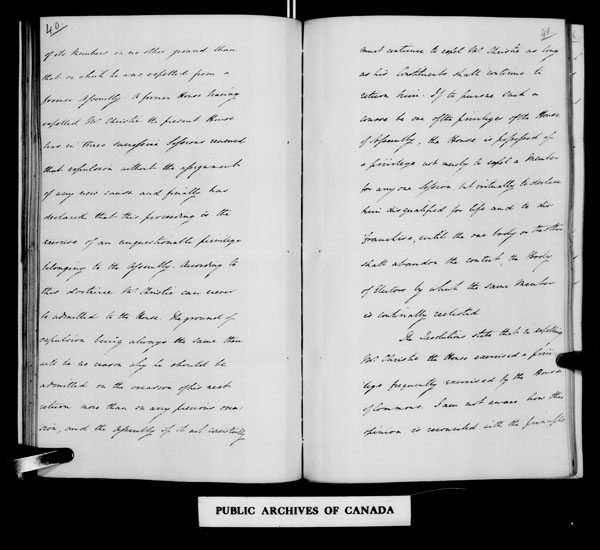 40.
of its Members on no other ground than
that on which he was expelled from a
former Assembly. A former House having
expelled Mr Christie the present House
has in three successive Sessions renewed
that expulsion without the assignment
of any new cause and finally has
declared that this proceeding is the
exercise of an unquestionable privilege
belonging to the Assembly. According to
this doctrine Mr Christie can never
be admitted to the House. The ground of
expulsion being always the same there
will be no reason why he should be
admitted on the occasion of his next
return more than on any previous occa-
sion, and the Assembly if it act consistently
41.
must continue to expel Mr Christie as long
as his Constituents shall continue to
return him. If to pursue such a
course be one of the privileges of the House
of Assembly, the House is possessed of
a privilege not merely to expel a Member
for any one Session but virtually to declare
him disqualified for life and to dis
franchise, until the one body or the other
shall abandon the contest, the Body
of Electors by which the same Member
is continually reelected
The Resolutions state that in expelling
Mr. Christie the House exercised a privi-
lege frequently exercised by the House
of Commons. I am not aware how this
opinion is reconciled with the principles
PUBLIC ARCHIVES OF CANADA